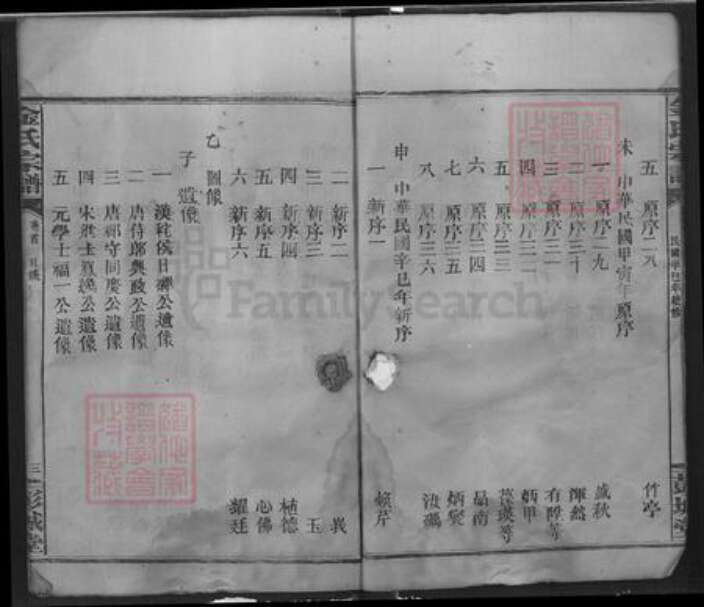 五 原序二八 竹亭
未 中華民國甲寅年原序
一 原序二九 盛秋
二 原序三十 渾然
三 原序三一 有陞等
四 原序三二 炳甲
五 原序三三
六 原序三四 品南
七 原序三五 炳燮
八 原序三六
申 中華民國辛巳年新序
一 新序一 賴芹
二 新序二
三 新序三 玉
四 新序四 植德
五 新序五 心佛
六 新序六 耀廷
乙 圖像
子 遺像
一 漢秺侯日磾公遺像
二 唐侍郎輿政公遺像
三 唐祁守同慶公遺像
四 宋公遺像
五 元學士福一公遺像
金氏宗譜
卷首 目錄
三 彭城堂
FamilySearch